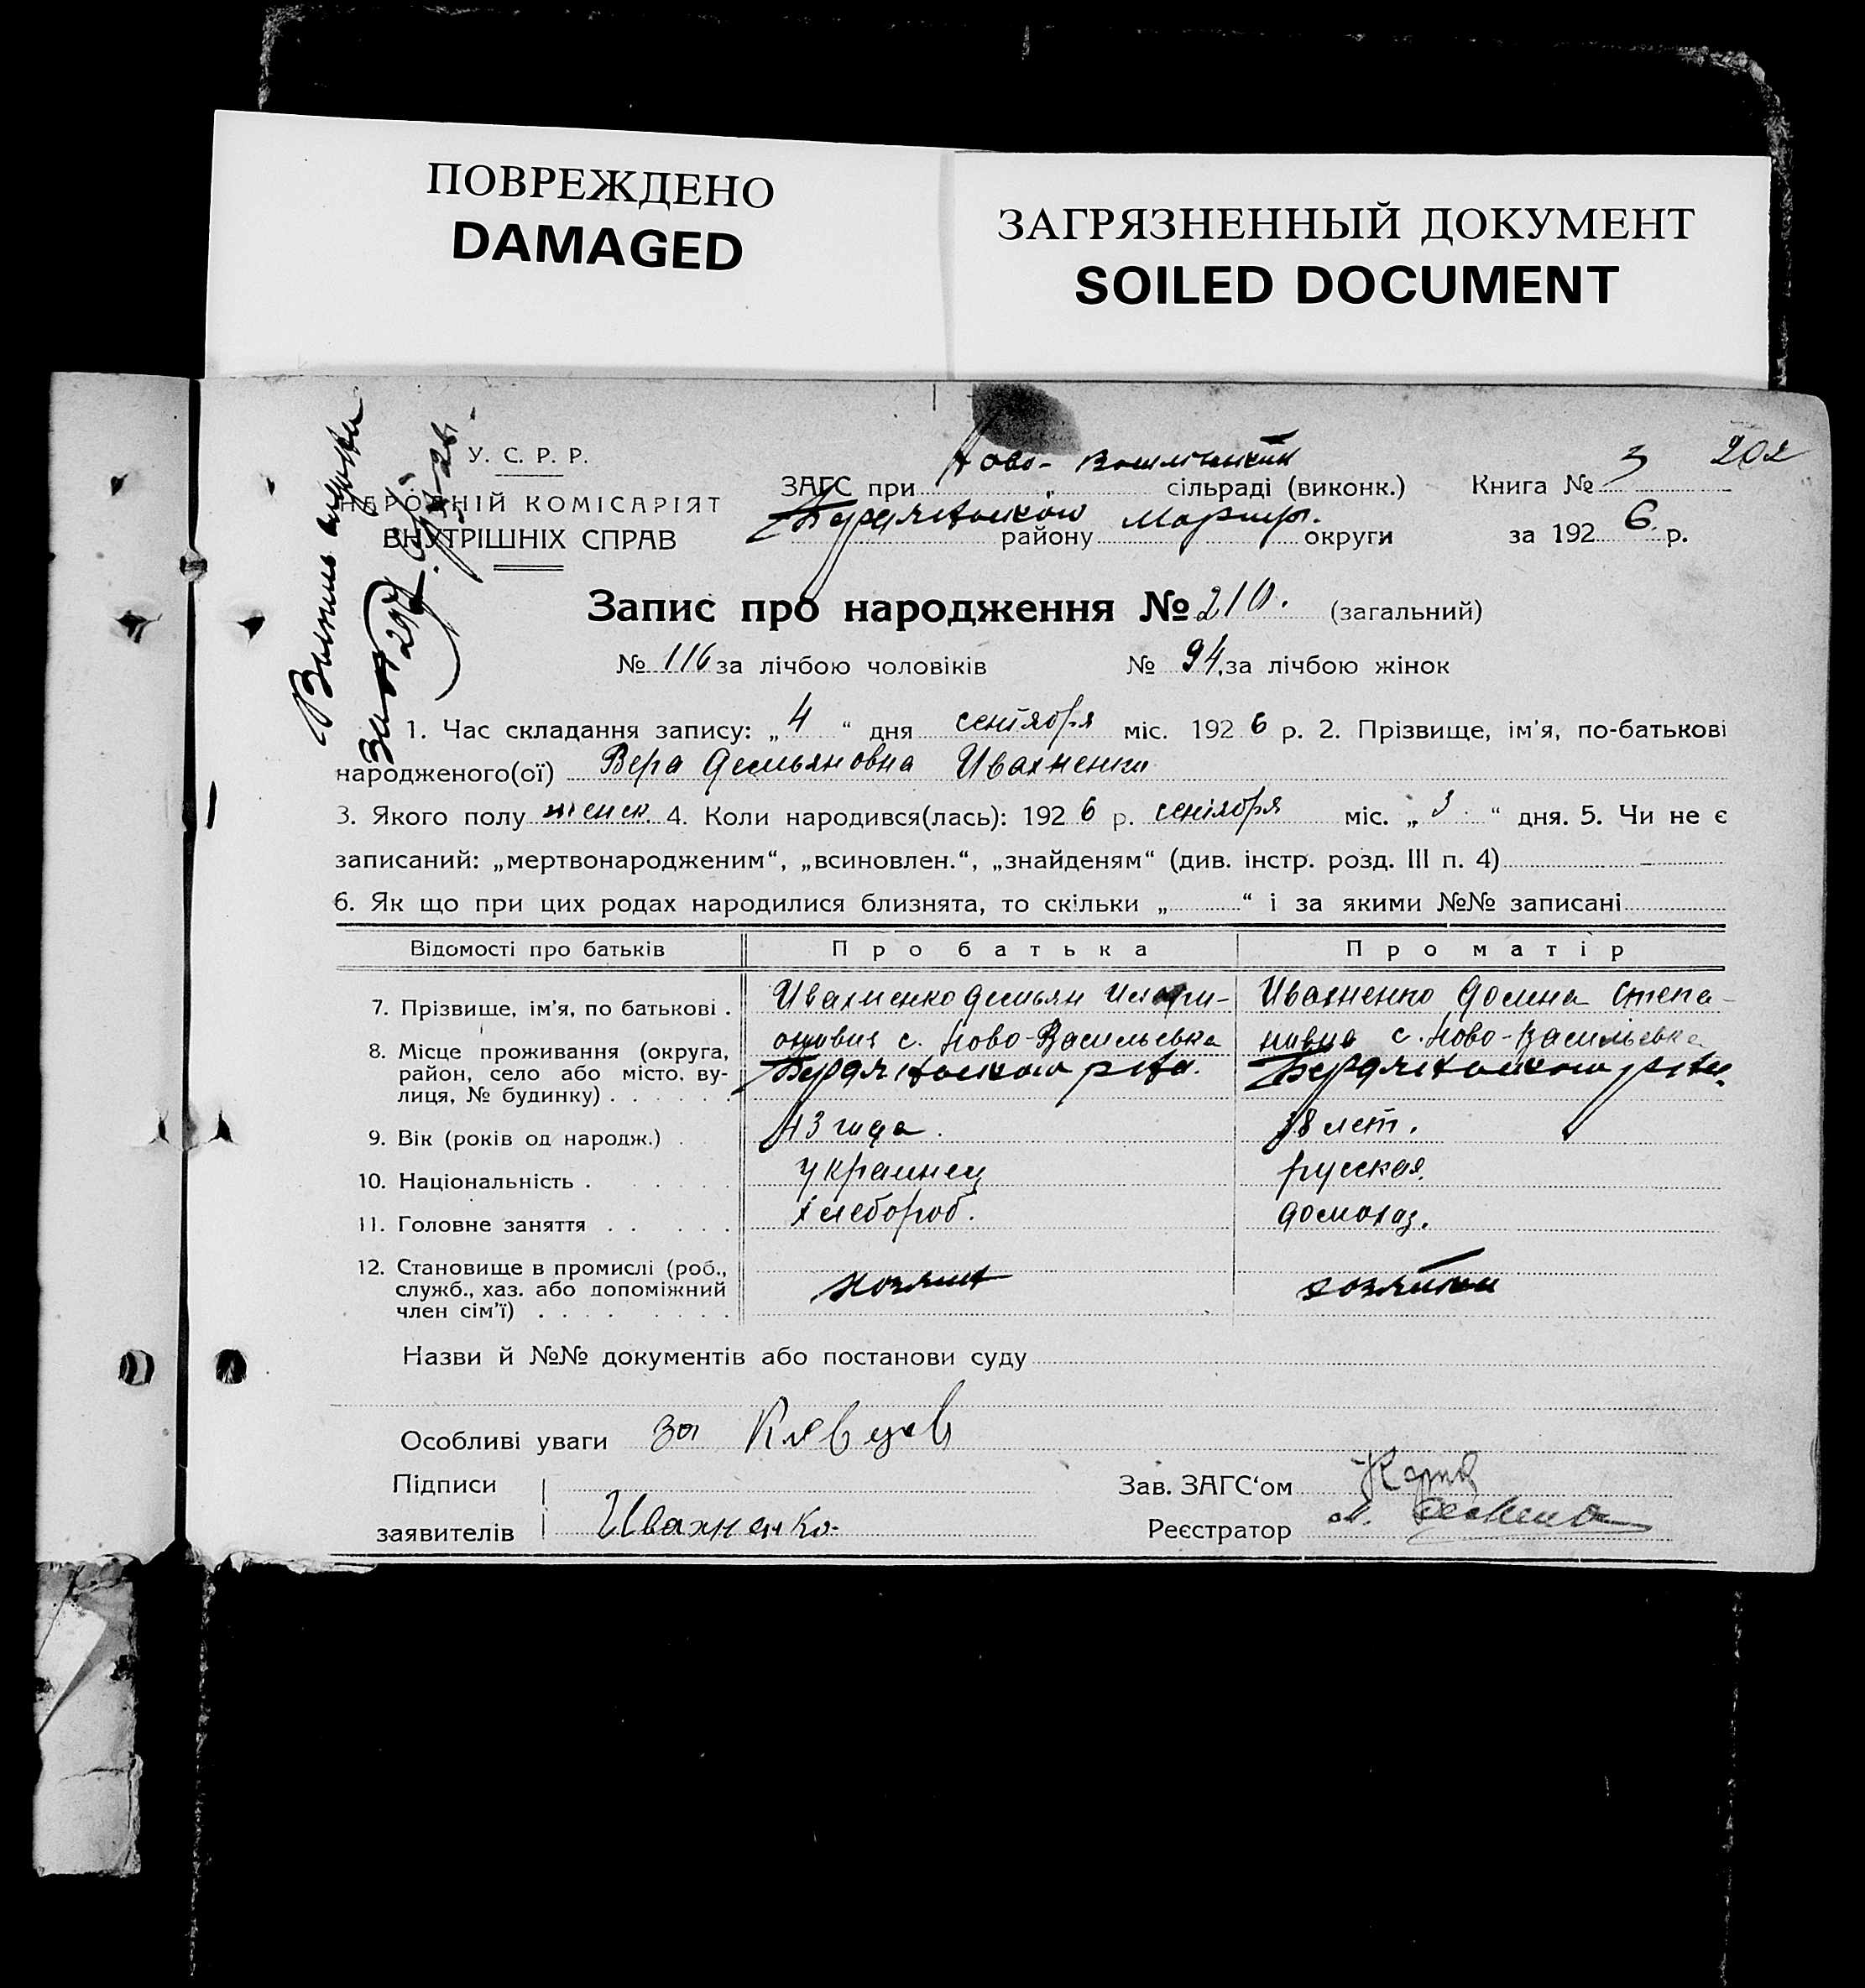 ПОВРЕЖДЕНО
DAMAGED
ЗАГРЯЗНЕННЫЙ ДОКУМЕНТ
SOILED DOCUMENT
202
У. С. Р. Р.
НАРОДНІЙ КОМІСАРІЯТ
ВНУТРІШНІХ СПРАВ
ЗАГС при Ново- сільраді (виконк.) Книга № 3
Бердянского району Мариуп. округи за 1926 р.
Запис про народження № 210. (загальний)
№ 116 за лічбою чоловіків № 94, за лічбою жінок
1. Час складання запису: „4“ дня сентября міс. 1926 р. 2. Прізвище, ім'я, по-батькові
народженого(ої) Вера Демьяновна Ивахненко
3. Якого полу женск. 4. Коли народився(лась): 1926 р. сентября міс. „3“ дня. 5. Чи не є
записаний: „мертвонародженим“, „всиновлен.“, „знайденям“ (див. інстр. розд. III п. 4)
6. Як що при цих родах народилися близнята, то скільки „ “ і за якими №№ записані
Відомості про батьків Про батька Про матір
7. Прізвище, ім'я, по батькові . Ивахненко Демьян Илари- Ивахненко Домна Степа-
8. Місце проживання (округа, район, село або місто, вулиця, № будинку) . . . . . . онович с. Ново-Васильевка Бердянского р-на. новна с. Ново-Васильевка Бердянского р-на.
9. Вік (років од народж.) . 43 года. 38 лет.
10. Національність . . . . . . украинец русская.
11. Головне заняття . . . . . хлебороб. домохаз.
12. Становище в промислі (роб., служб., хаз. або допоміжний член сім'ї) . . . . . . . . хозяин хозяйка
Назви й №№ документів або постанови суду
Особливі уваги за
Підписи Зав. ЗАГС'ом
заявителів Ивахненко Реєстратор М.